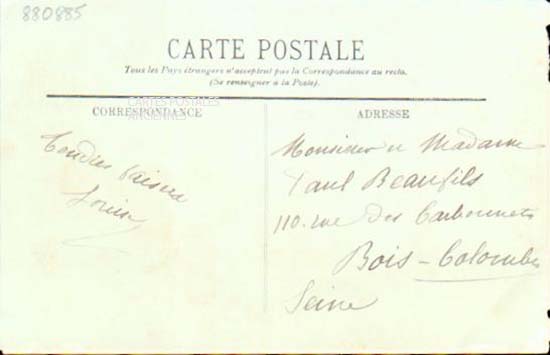 880885
CARTE POSTALE
Tous les Pays étrangers n'acceptent pas la Correspondance au recto.
(Se renseigner à la Poste).
CARTES POSTALES
ANCIENNES
CORRESPONDANCE
ADRESSE
Tendres baisers
Louise
Monsieur et Madame
Paul Beaufils
110. rue des Carbonnets
Bois-Colombes
Seine